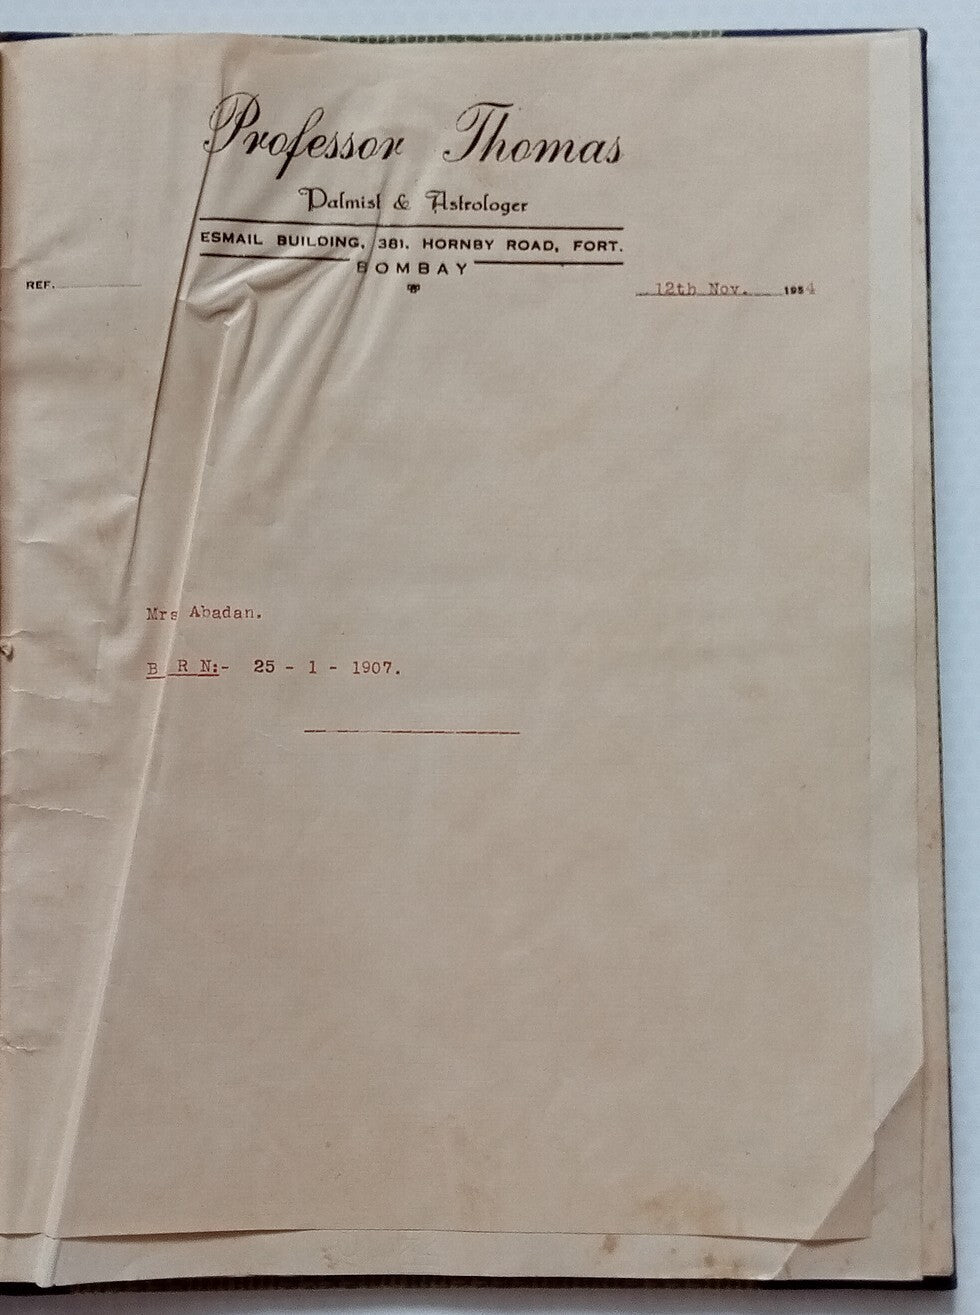 Professor Thomas
Palmist & Astrologer
ESMAIL BUILDING, 381, HORNBY ROAD, FORT.
BOMBAY
REF.
12th Nov. 1954
Mrs Abadan.
B R N:- 25 - 1 - 1907.